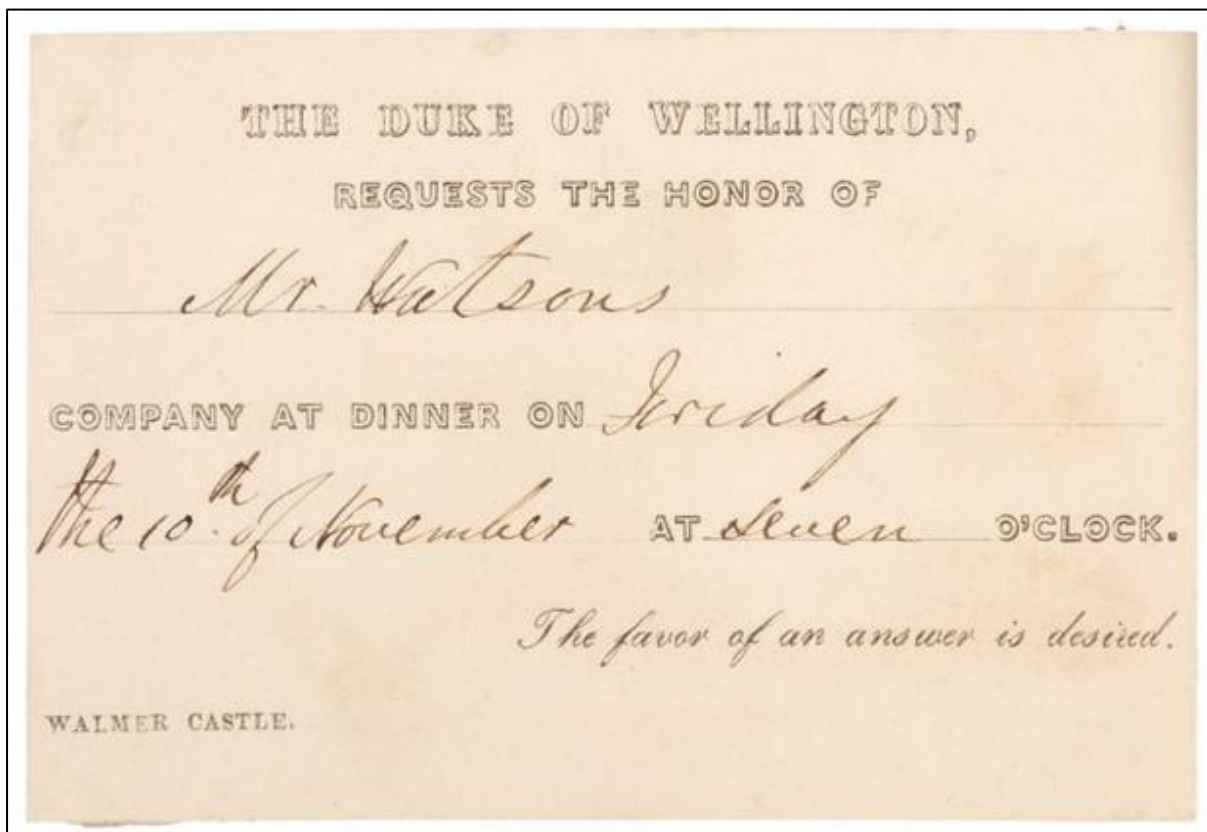 THE DUKE OF WELLINGTON,
REQUESTS THE HONOR OF
Mr. Watsons
COMPANY AT DINNER ON Friday
the 10th of November AT seven O'CLOCK.
The favor of an answer is desired.
WALMER CASTLE.